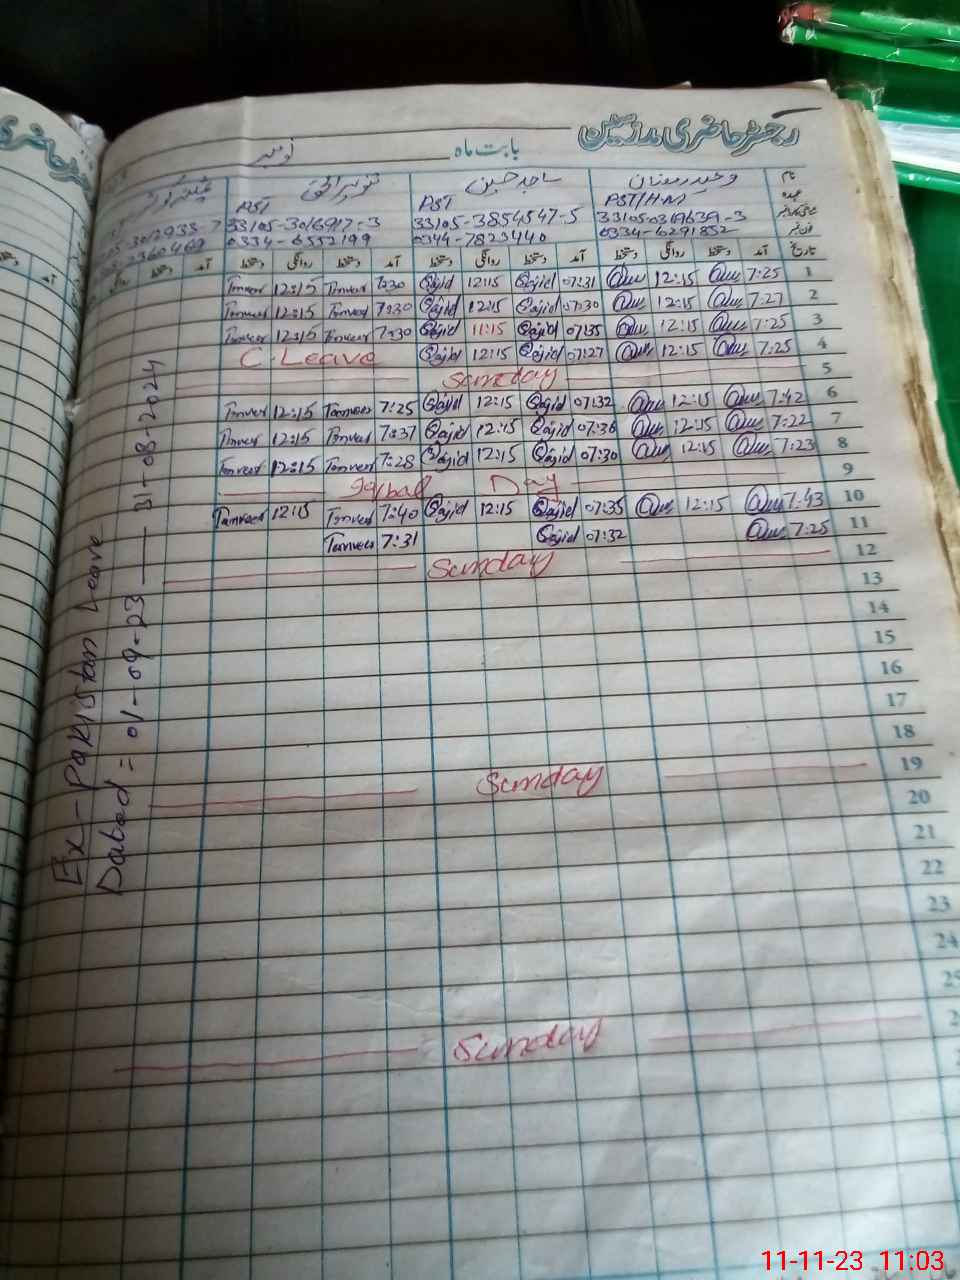 رجسٹر حاضری مدرسین
بابت ماہ نومبر
نام وحید رمضان ساجد حسین تنویر الحق
عہدہ PST/H.M PST PST
33105-0319639-3 33105-3854547-5 33105-3016917-3
0334-6291852 0344-7823440 0334-6552199
تاریخ آمد دستخط روانگی دستخط آمد دستخط روانگی دستخط آمد دستخط روانگی دستخط آمد دستخط روانگی
Tanveer 12:15 Tanveer 7:30 Sajid 12:15 Sajid 07:31 12:15 7:25 1
Tanveer 12:15 Tanveer 7:30 Sajid 12:15 Sajid 07:30 12:15 7:27 2
Tanveer 12:15 Tanveer 7:30 Sajid 11:15 Sajid 07:35 12:15 7:25 3
C. Leave Sajid 12:15 Sajid 07:27 12:15 7:25 4
Sunday 5
Tanveer 12:15 Tanveer 7:25 Sajid 12:15 Sajid 07:32 12:15 7:42 6
Tanveer 12:15 Tanveer 7:37 Sajid 12:15 Sajid 07:36 12:15 7:22 7
Tanveer 12:15 Tanveer 7:28 Sajid 12:15 Sajid 07:30 12:15 7:23 8
Iqbal Day 9
Tanveer 12:15 Tanveer 7:40 Sajid 12:15 Sajid 07:35 12:15 7:43 10
Tanveer 7:31 Sajid 07:32 7:25 11
Sunday 12
13
14
15
16
17
18
Sunday 19
20
21
22
23
24
25
Sunday
Ex-Pakistan Leave
Dated = 01-09-23 — 31-08-2024
11-11-23 11:03